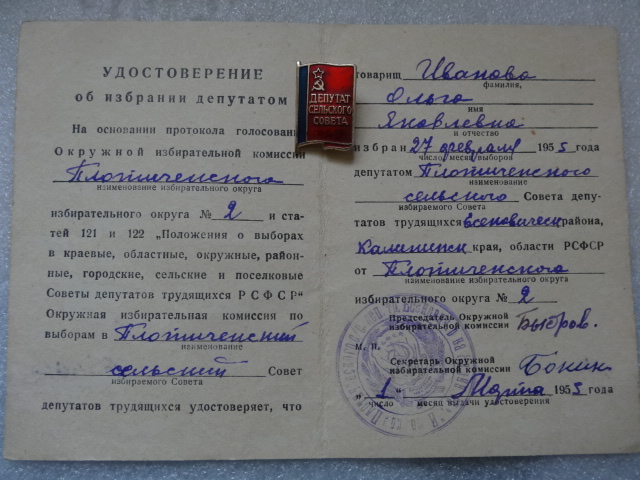 УДОСТОВЕРЕНИЕ
об избрании депутатом
На основании протокола голосован
Окружной избирательной комиссии
Плотиченского
наименование избирательного округа
избирательного округа № 2 и ста-
тей 121 и 122 „Положения о выборах
в краевые, областные, окружные, район-
ные, городские, сельские и поселковые
Советы депутатов трудящихся РСФСР"
Окружная избирательная комиссия по
выборам в Плотиченский
наименование
сельский Совет
избираемого Совета
депутатов трудящихся удостоверяет, что
ДЕПУТАТ
СЕЛЬСКОГО
СОВЕТА
товарищ Иванова
фамилия,
Ольга
имя
Яковлевна
и отчество
избран 27 февраля 1955 года
число, месяц выборов
депутатом Плотиченского
наименование
сельского Совета депу-
избираемого Совета
татов трудящихся района,
Калининск края, области РСФСР
от Плотиченского
наименование
избирательного округа № 2
Председатель Окружной
избирательной комиссии
М. П.
Секретарь Окружной
избирательной комиссии
„1" Марта 1955 года
число месяц выдачи удостоверения